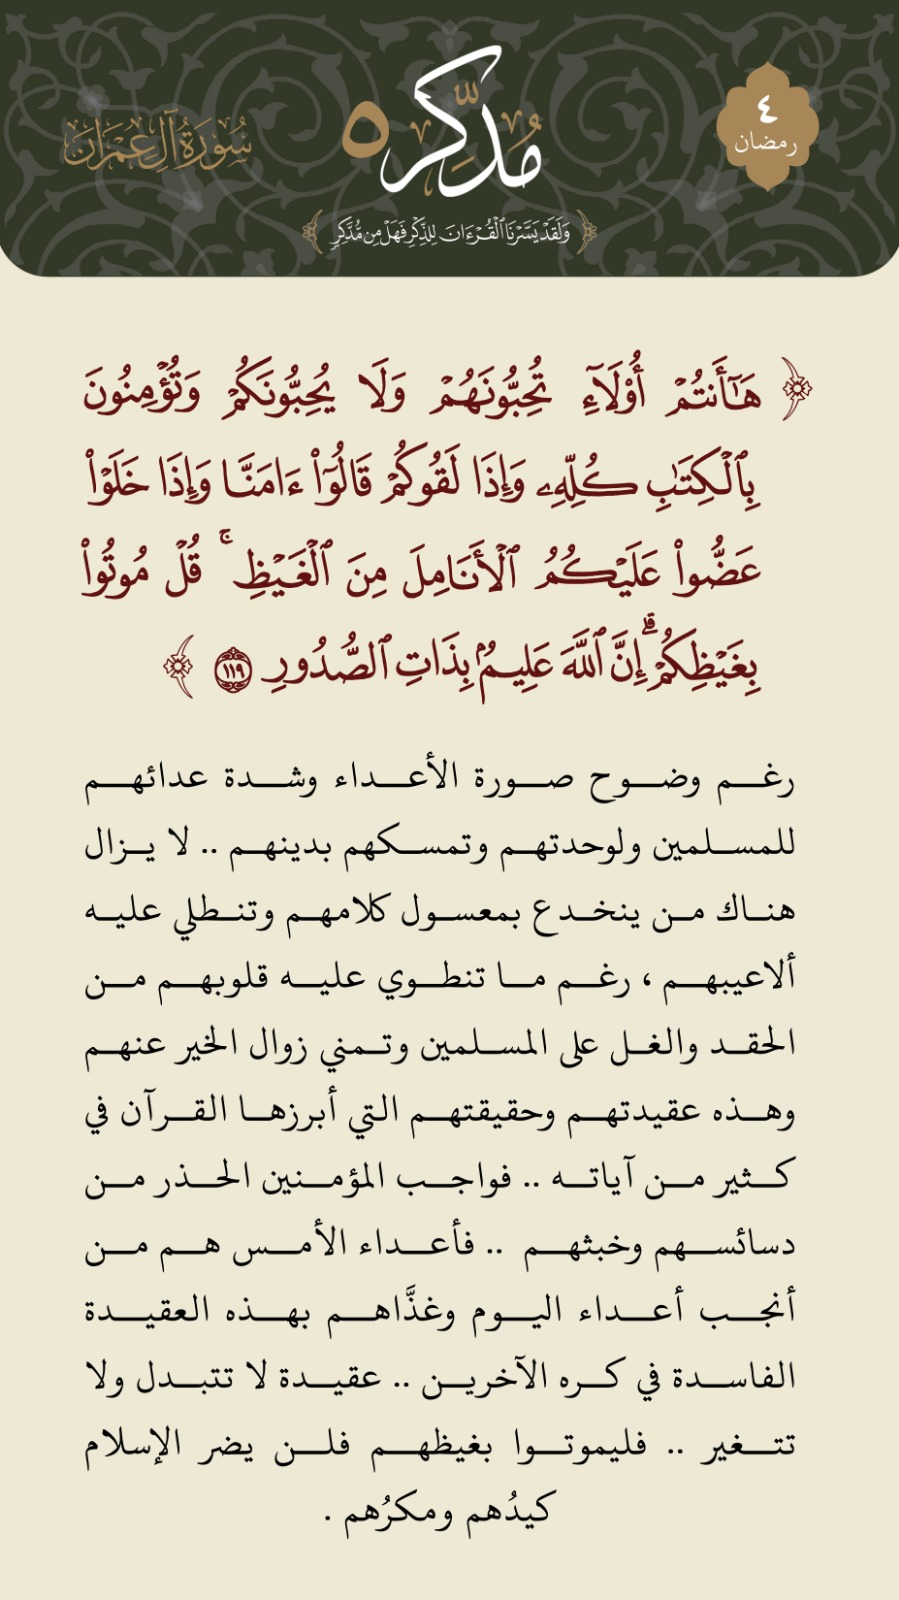 ٤
رمضان
مُدَّكِر ٥
سُورَةُ آلِ عِمْرَان
﴿ وَلَقَدْ يَسَّرْنَا ٱلْقُرْءَانَ لِلذِّكْرِ فَهَلْ مِن مُّدَّكِرٍ ﴾
﴿ هَٰٓأَنتُمْ أُو۟لَآءِ تُحِبُّونَهُمْ وَلَا يُحِبُّونَكُمْ وَتُؤْمِنُونَ
بِٱلْكِتَٰبِ كُلِّهِۦ وَإِذَا لَقُوكُمْ قَالُوٓا۟ ءَامَنَّا وَإِذَا خَلَوْا۟
عَضُّوا۟ عَلَيْكُمُ ٱلْأَنَامِلَ مِنَ ٱلْغَيْظِ ۚ قُلْ مُوتُوا۟
بِغَيْظِكُمْ ۗ إِنَّ ٱللَّهَ عَلِيمٌۢ بِذَاتِ ٱلصُّدُورِ ١١٩ ﴾
رغم وضوح صورة الأعداء وشدة عدائهم
للمسلمين ولوحدتهم وتمسكهم بدينهم .. لا يزال
هناك من ينخدع بمعسول كلامهم وتنطلي عليه
ألاعيبهم ، رغم ما تنطوي عليه قلوبهم من
الحقد والغل على المسلمين وتمني زوال الخير عنهم
وهذه عقيدتهم وحقيقتهم التي أبرزها القرآن في
كثير من آياته .. فواجب المؤمنين الحذر من
دسائسهم وخبثهم .. فأعداء الأمس هم من
أنجب أعداء اليوم وغذَّاهم بهذه العقيدة
الفاسدة في كره الآخرين .. عقيدة لا تتبدل ولا
تتغير .. فليموتوا بغيظهم فلن يضر الإسلام
كيدُهم ومكرُهم .